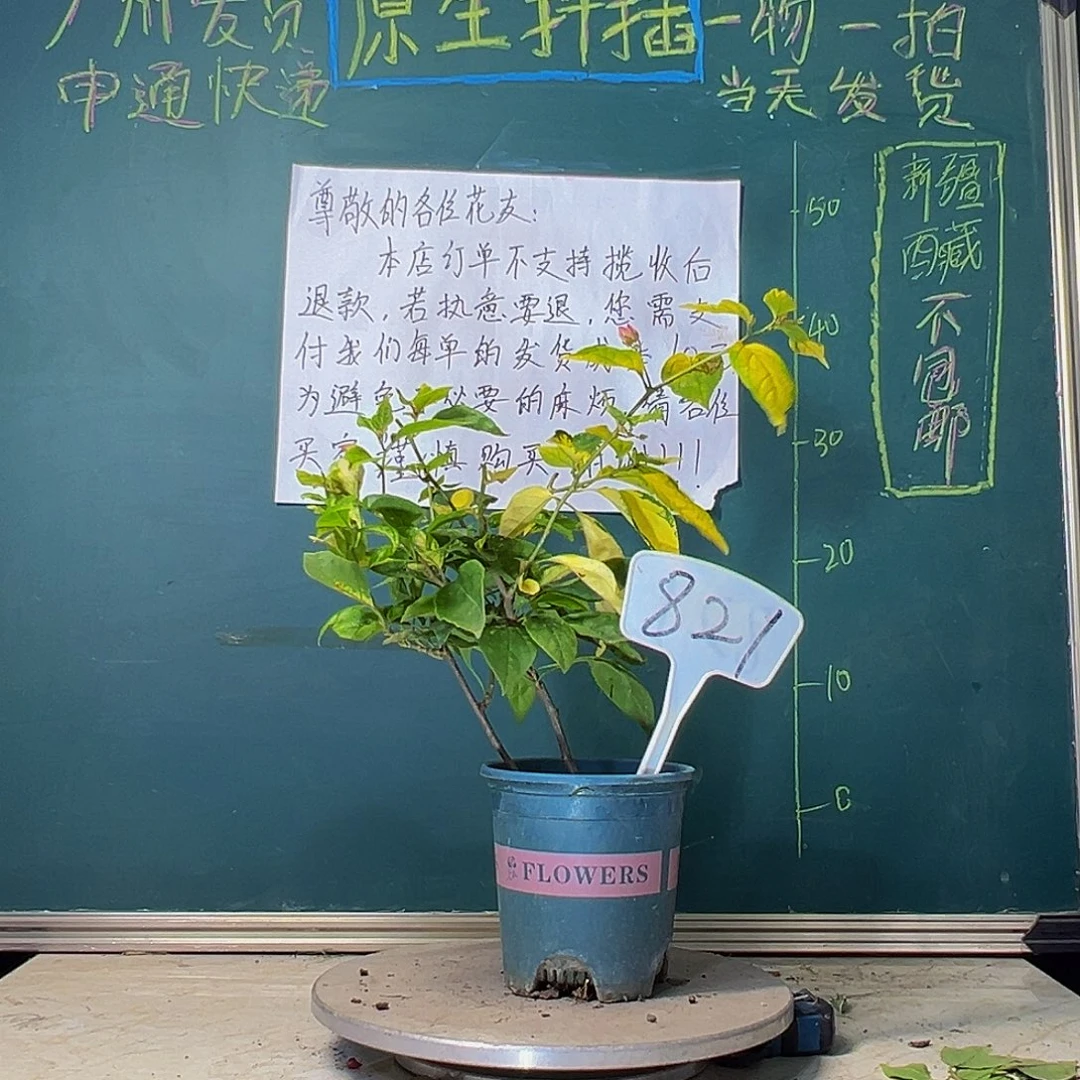 广州发货 原生扦插 一物一拍
申通快递 当天发货
尊敬的各位花友:
本店订单不支持揽收后
退款,若执意要退,您需支
付我们每单的发货成
为避免 必要的麻烦 请各位
买家谨慎购买 !!!
50
40
30
20
10
0
新疆
西藏
不
包
邮
821
FLOWERS